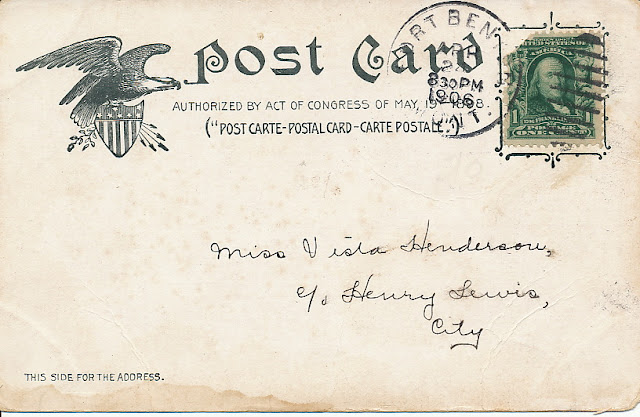 Post Card
AUTHORIZED BY ACT OF CONGRESS OF MAY 19TH 1898.
("POST CARTE-POSTAL CARD-CARTE POSTALE.")
RT BEN
8 30 PM
1906
ONT.
UNITED STATES OF
1 1
FRANKLIN
POSTAGE
ONE
Miss Vista Henderson,
c/o Henry Lewis,
City
THIS SIDE FOR THE ADDRESS.